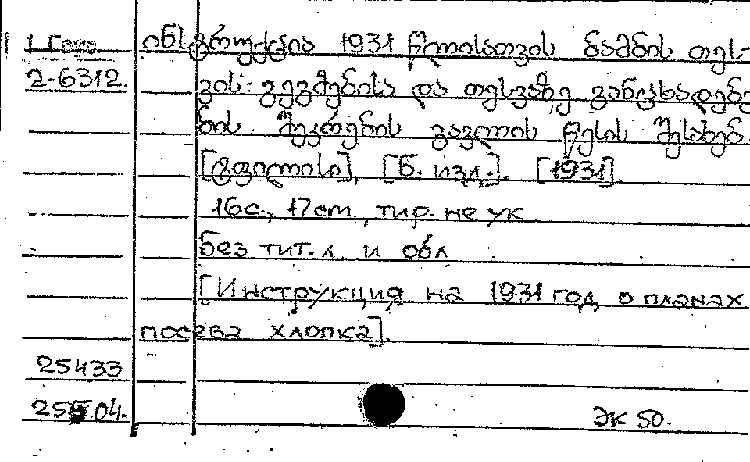 1 Гол ინსტრუქცია 1931 წლისათვის ბამბის თეს-
2-6312. ვის გეგმებისა და თესვაზე განცხადებე
ბის შეკრების გავლის წესის შესახებ.
[ტფილისი], [Б. изл.]. [1931].
16с., 17cm, тир. не ук.
без тит. л. и обл
[Инструкция на 1931 год о планах
посева хлопка].
25433
25504. ЭК 50.